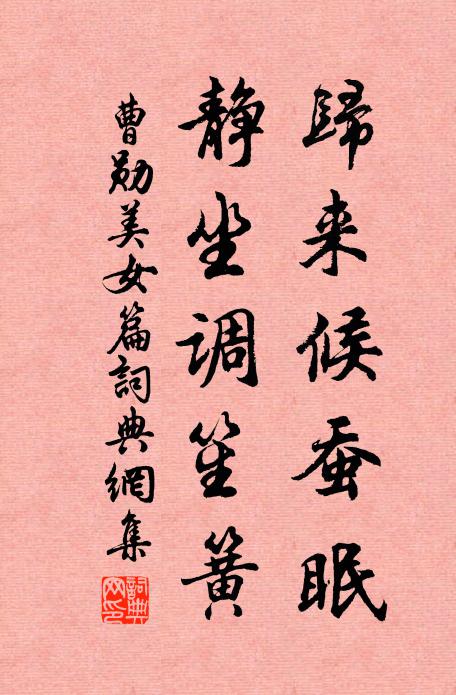 歸来候蚕眠
静坐調笙簧
曹勛美女篇詞典網集
詞典網印